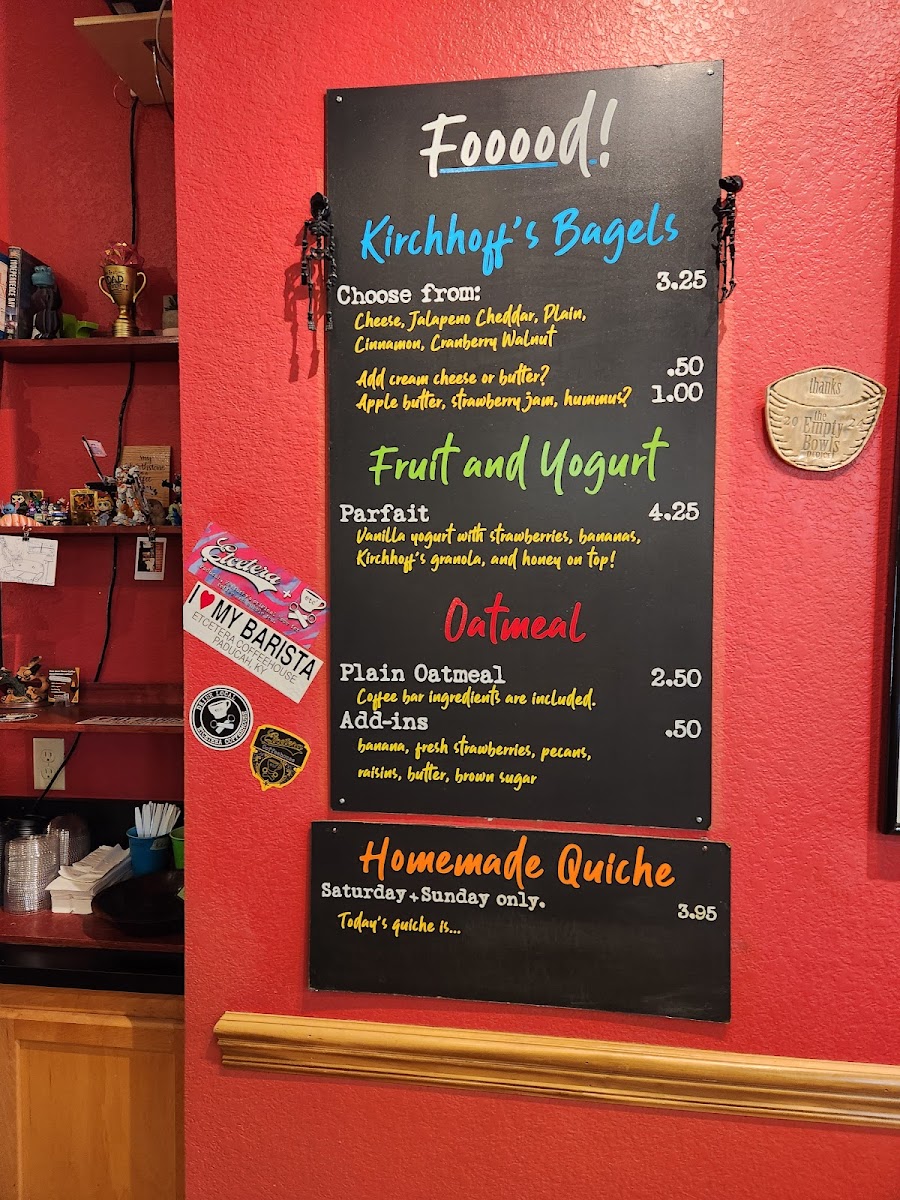 Fooood!
Kirchhoff's Bagels
Choose from: 3.25
Cheese, Jalapeno Cheddar, Plain,
Cinnamon, Cranberry Walnut
Add cream cheese or butter? .50
Apple butter, strawberry jam, hummus? 1.00
Fruit and Yogurt
Parfait 4.25
Vanilla yogurt with strawberries, bananas,
Kirchhoff's granola, and honey on top!
Oatmeal
Plain Oatmeal 2.50
Coffee bar ingredients are included.
Add-ins .50
banana, fresh strawberries, pecans,
raisins, butter, brown sugar
Homemade Quiche
Saturday + Sunday only. 3.95
Today's quiche is...
Etcetera
etc
I ♥ MY BARISTA
ETCETERA COFFEEHOUSE
PADUCAH, KY
DRINK LOCAL
ETCETERA COFFEEHOUSE
Etcetera
Coffeehouse
thanks
20
the
Empty
Bowls
PROJECT
DAD